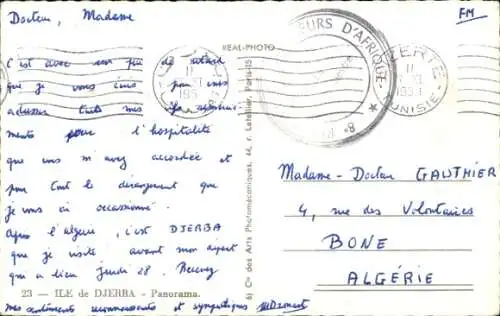 Docteur, Madame
FM
REAL-PHOTO
C'est avec un peu de retard
que je vous
adresser tous mes
ments pour l'hospitalité
que vous m'avez accordée et
pour tout le dérangement que
je vous ai occasionné.
Après l'Algérie, c'est DJERBA
que je visite avant mon départ
qui a lieu jeudi 28. Recevez
23 — ILE de DJERBA - Panorama.
mes sentiments reconnaissants et sympathiques
Cie des Arts Photomécaniques, 44, r. Letellier, Paris-15
EURS D'AFRIQUE
TUNISIE
Madame - Docteur GAUTHIER
4, rue des Volontaires
BONE
ALGÉRIE